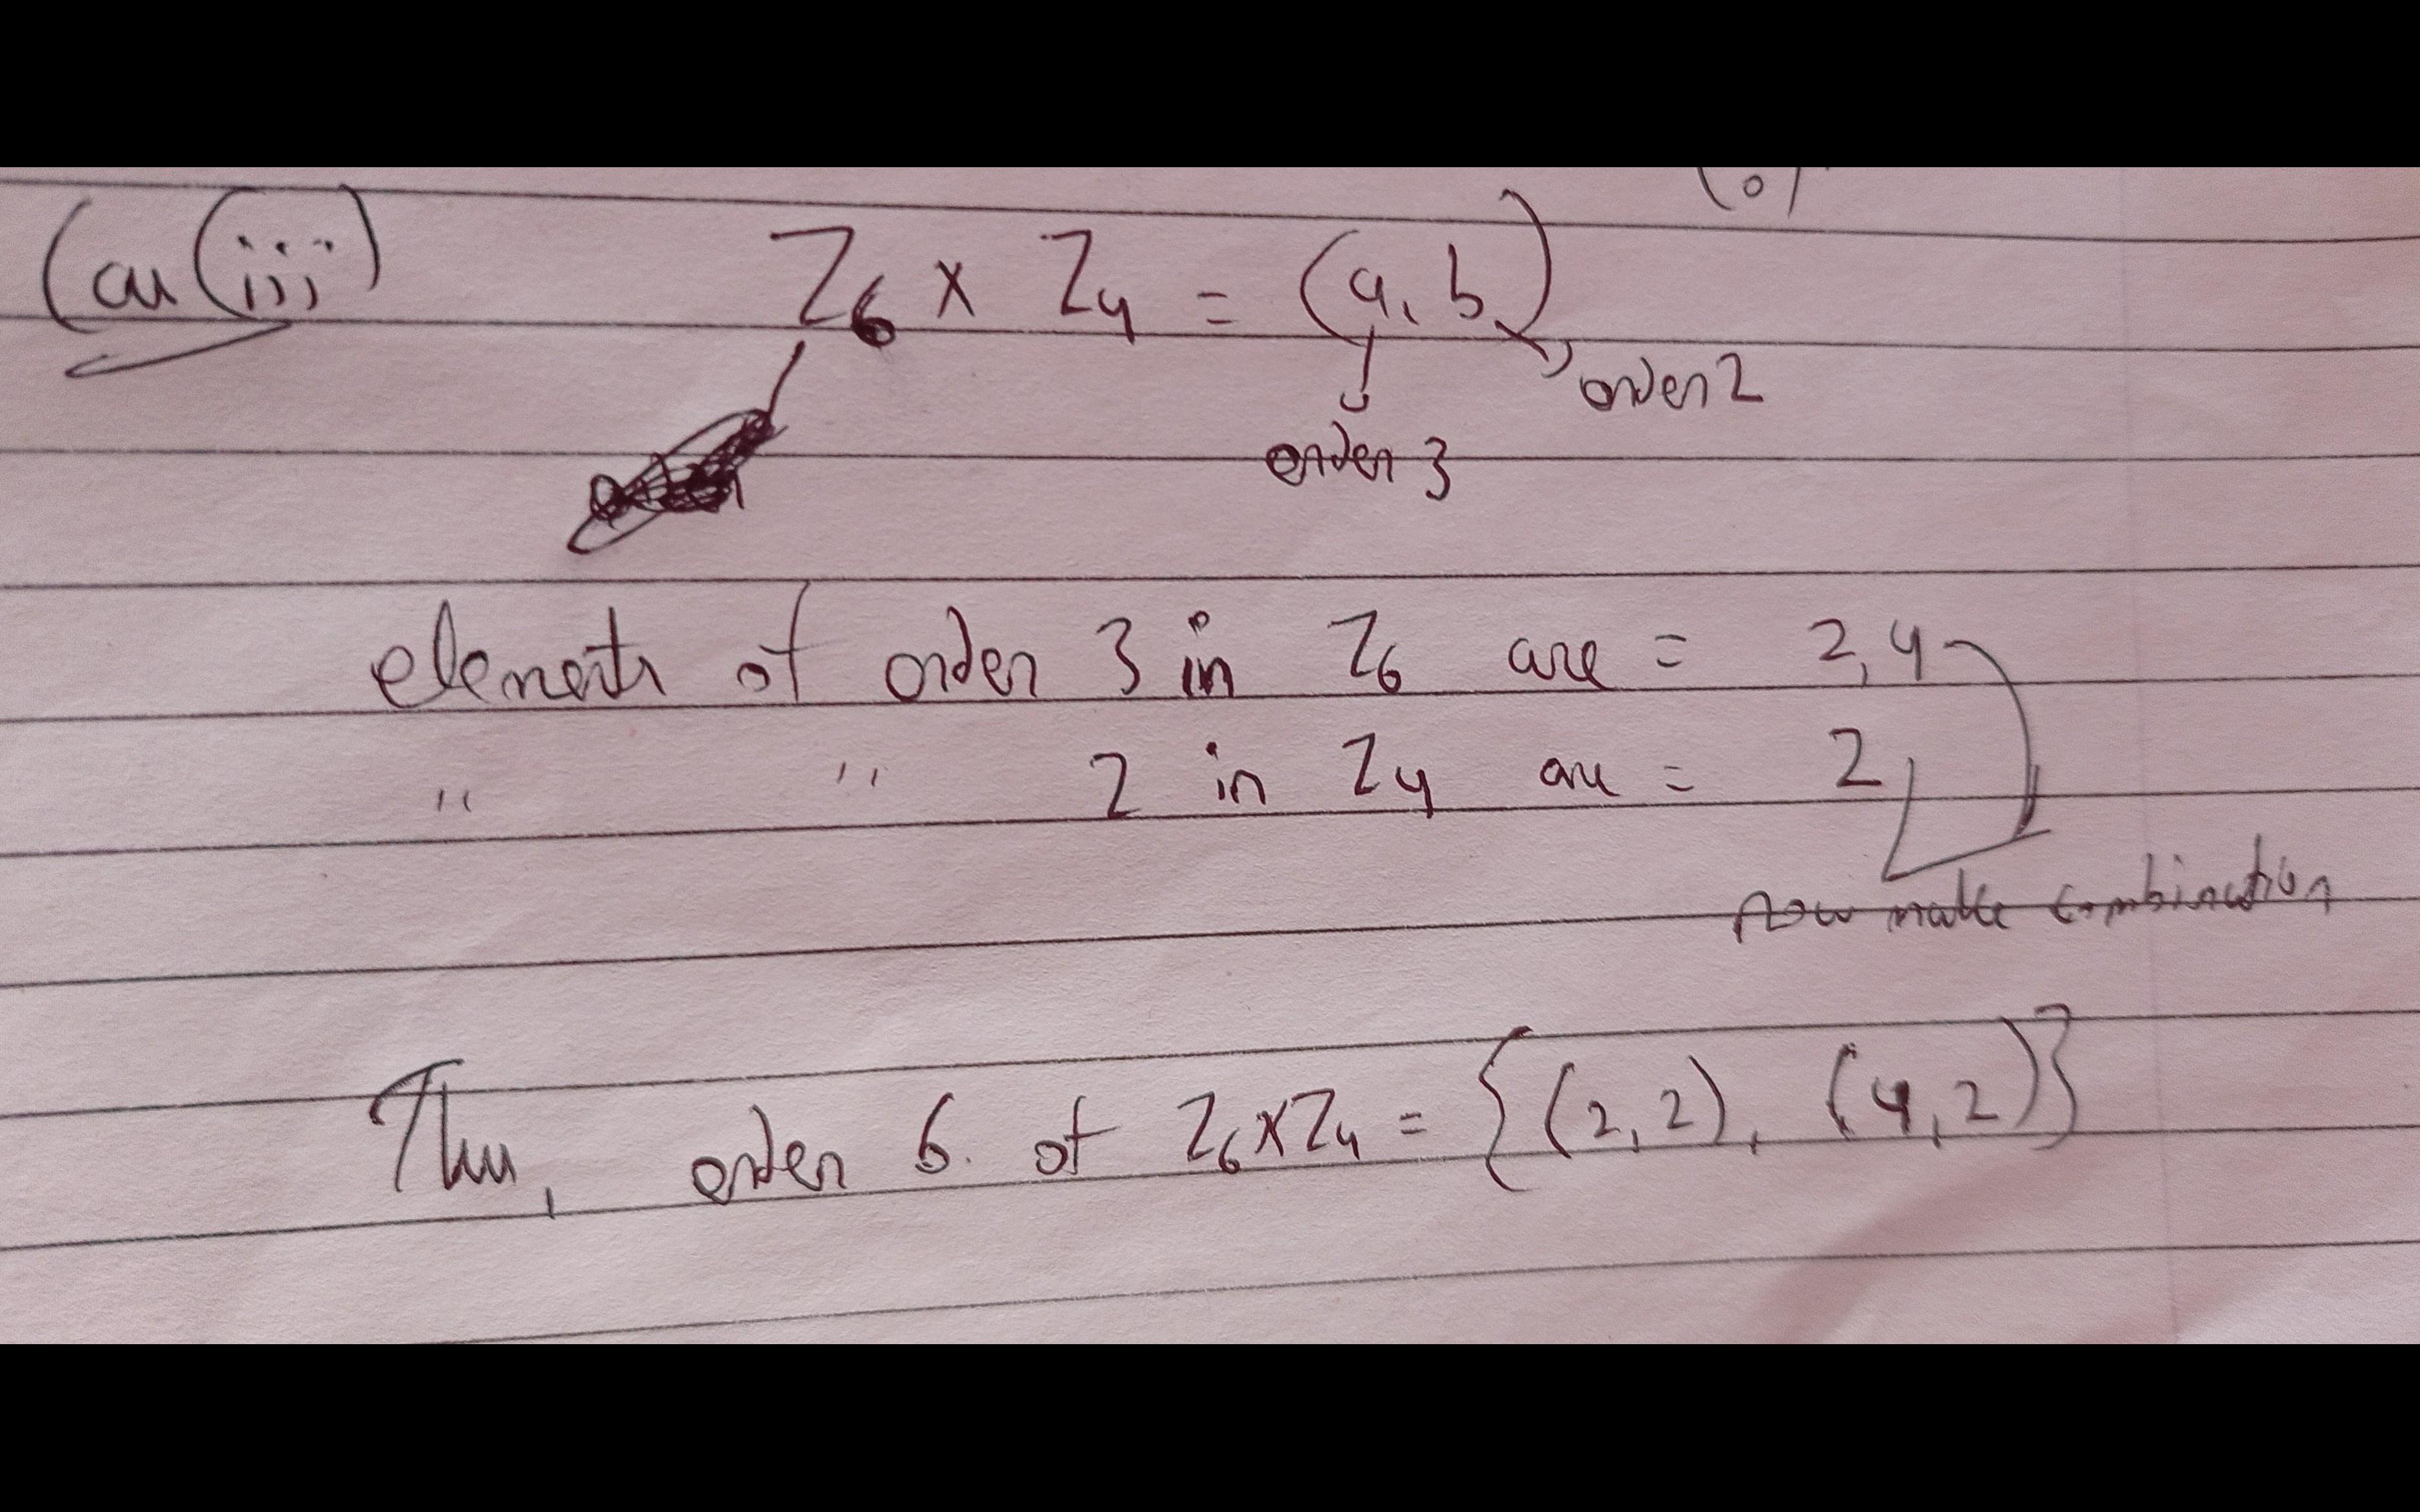 (o)
Case (iii) Z6 x Z4 = (a, b)
order 2
order 3
elements of order 3 in Z6 are = 2, 4
" " 2 in Z4 are = 2
now make combination
Thus, order 6 of Z6xZ4 = {(2, 2), (4, 2)}